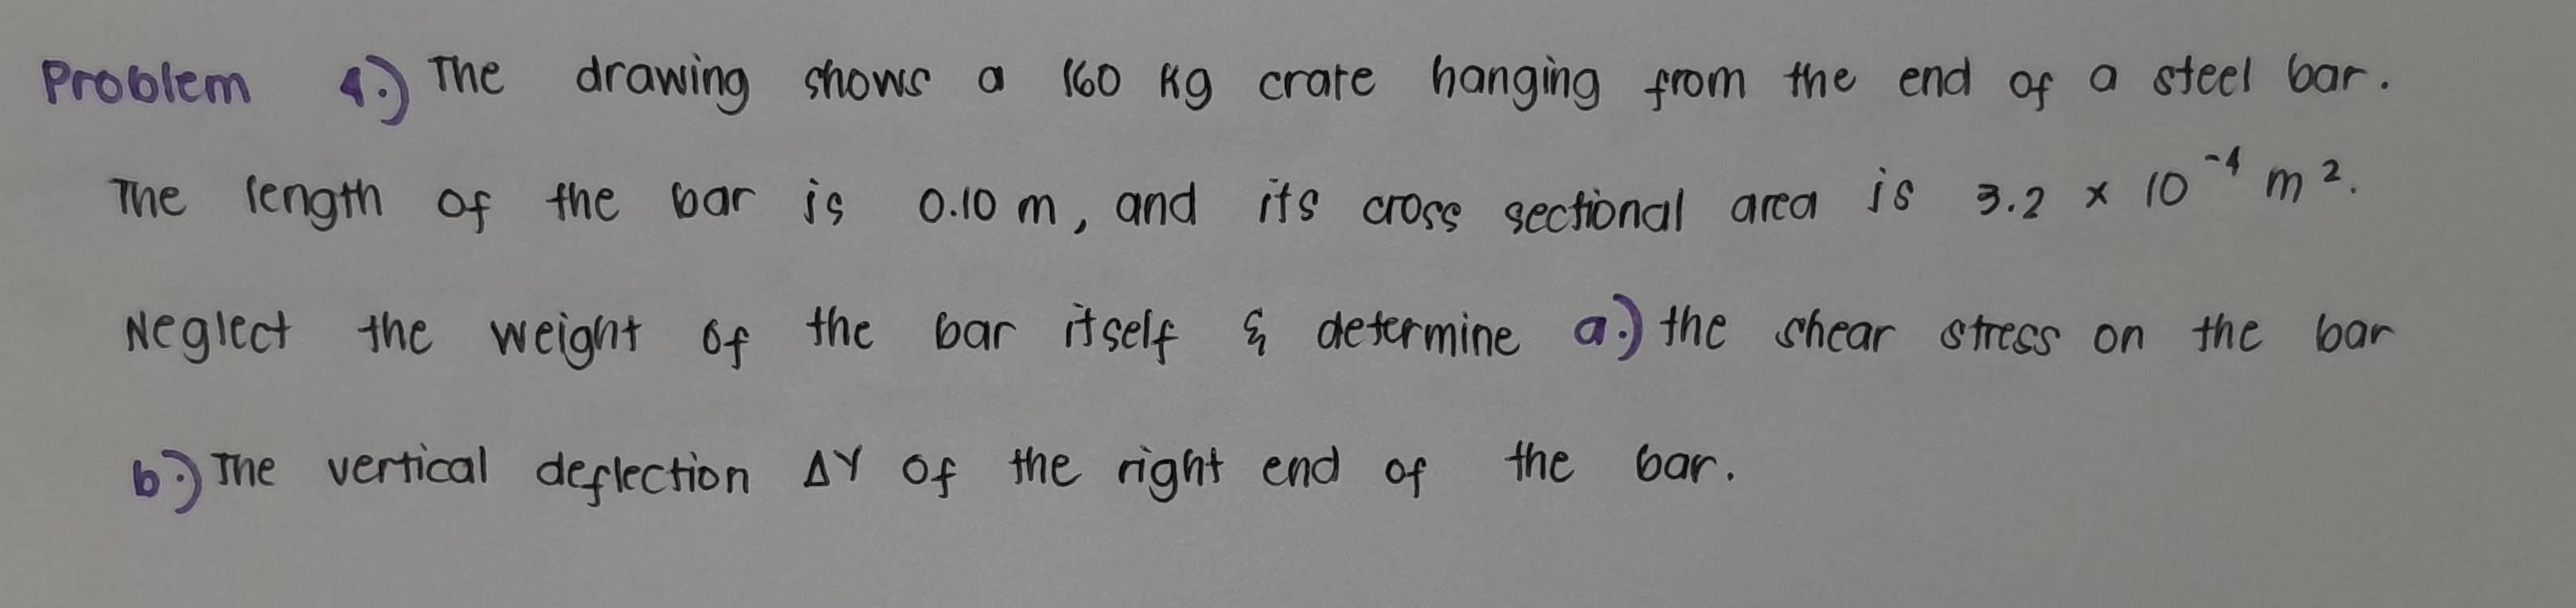 Problem 4.) The drawing shows a 160 kg crate hanging from the end of a steel bar.
The length of the bar is 0.10 m, and its cross sectional area is 3.2 x 10⁻⁴ m².
Neglect the weight of the bar itself & determine a.) the shear stress on the bar
b.) The vertical deflection ΔY of the right end of the bar.